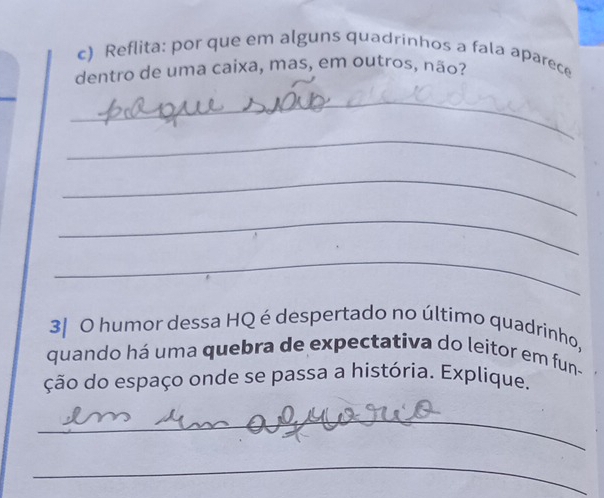 c) Reflita: por que em alguns quadrinhos a fala aparece
dentro de uma caixa, mas, em outros, não?
poque são
3| O humor dessa HQ é despertado no último quadrinho,
quando há uma quebra de expectativa do leitor em fun-
ção do espaço onde se passa a história. Explique.
em um aquario